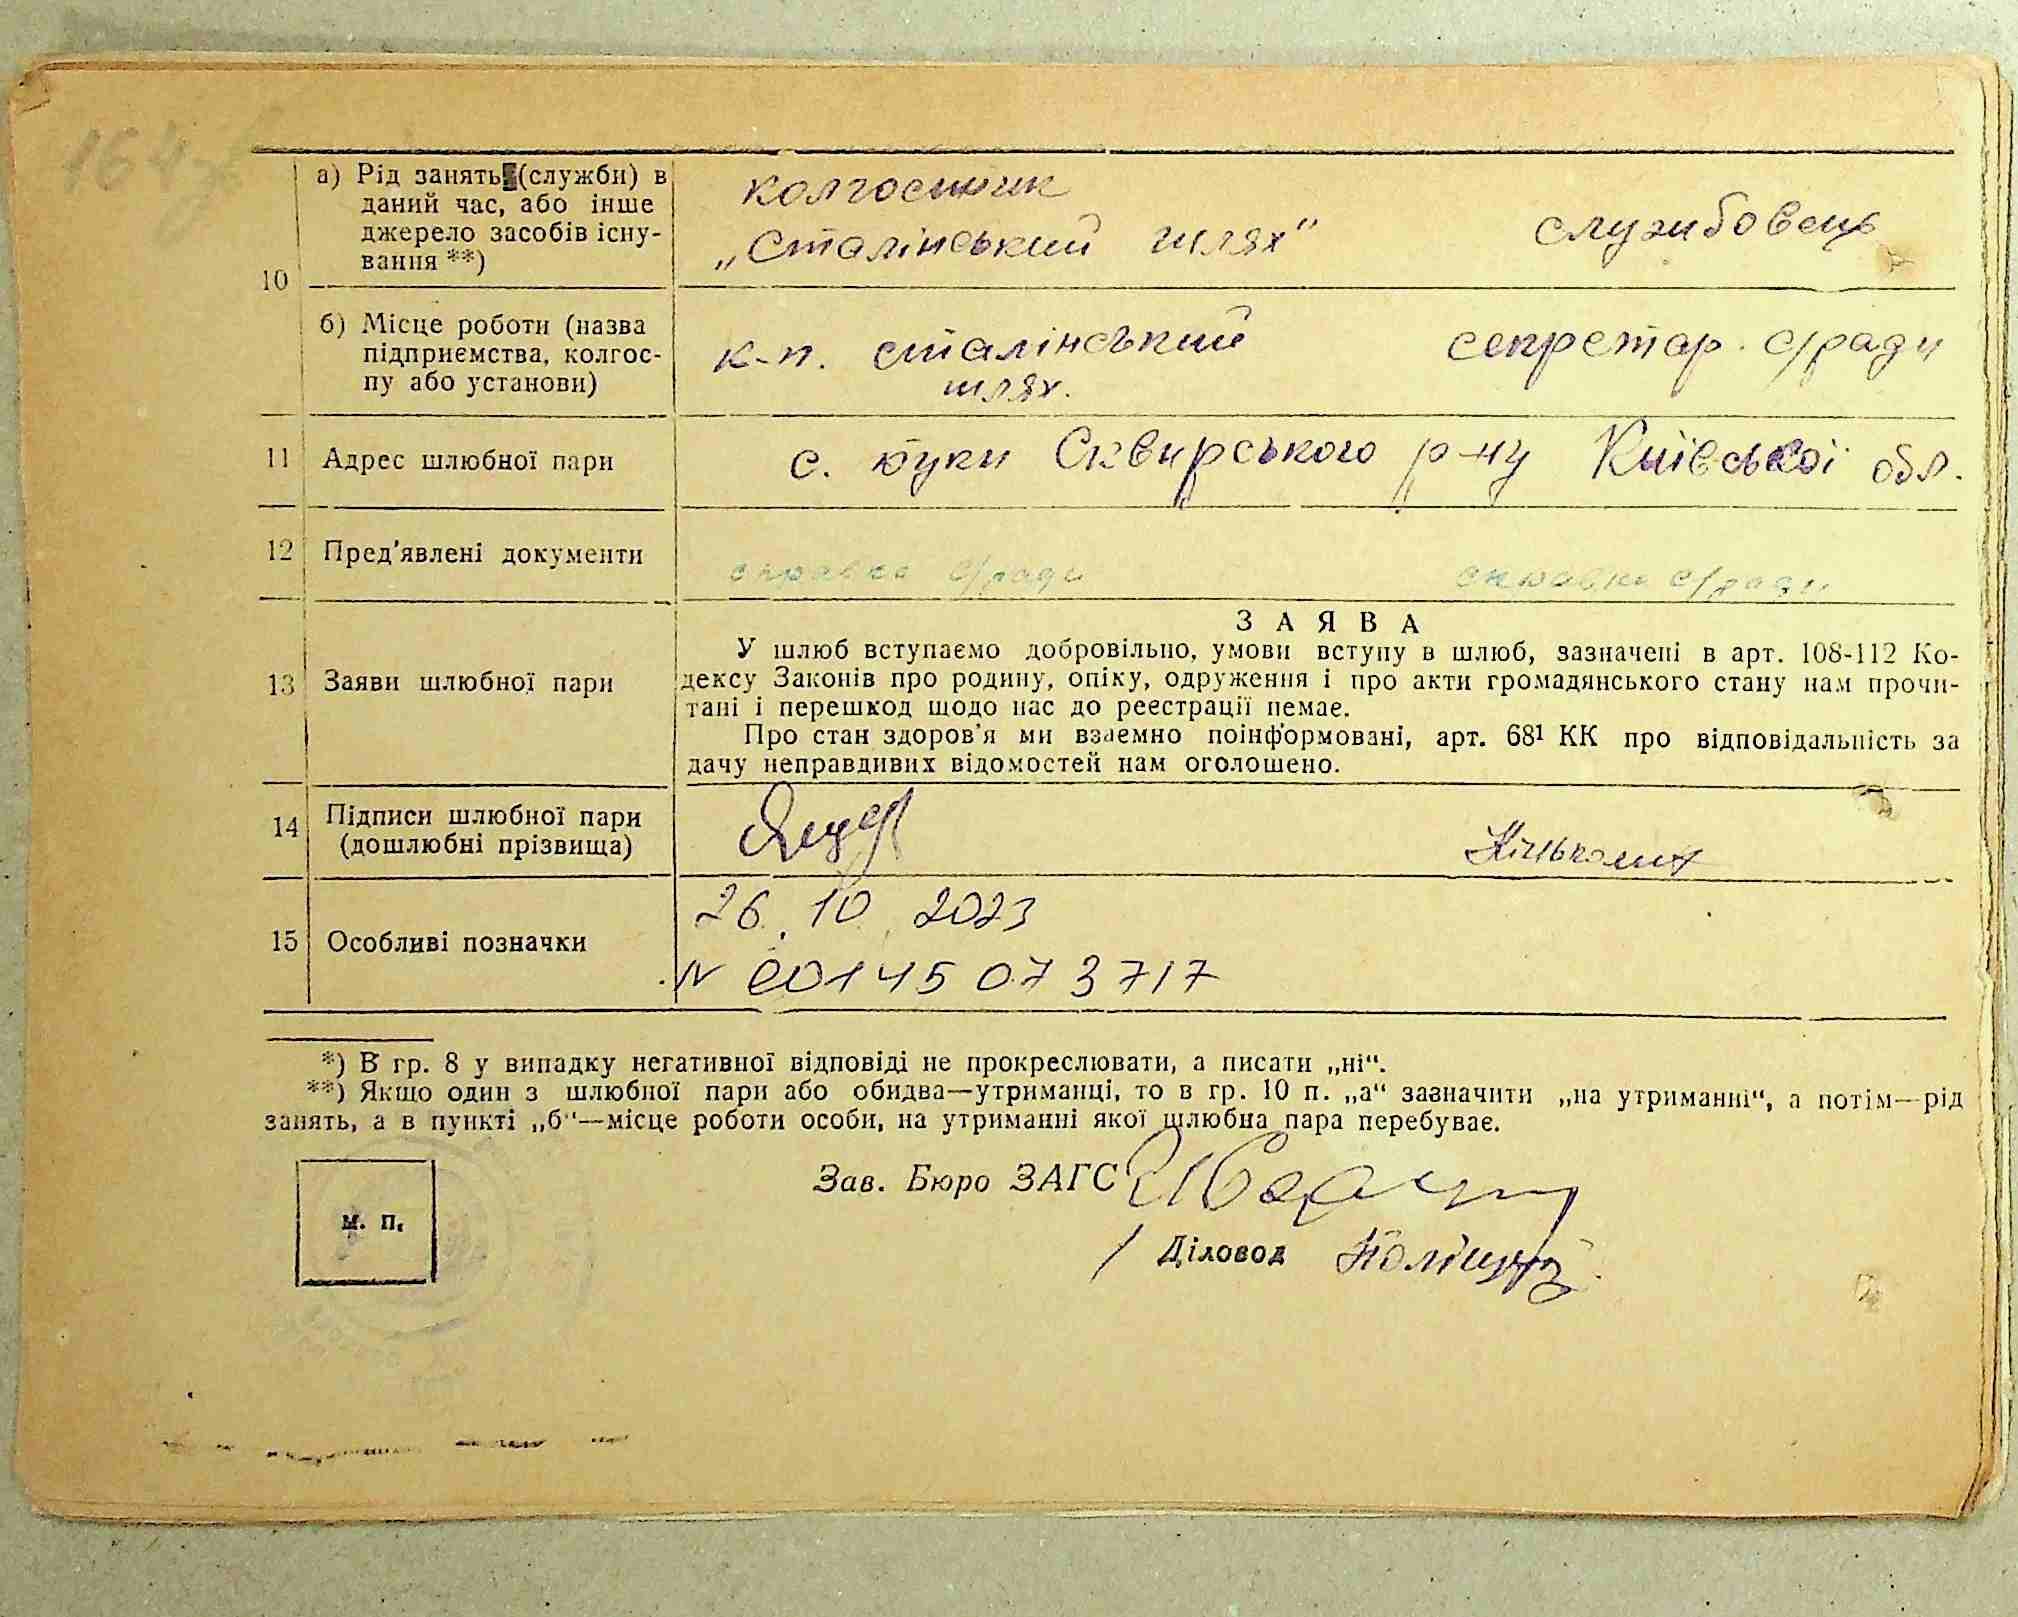 164
а) Рід занять (служби) в
даний час, або інше
джерело засобів існу-
вання **)
10
колгоспник
„Сталінський шлях"
службовець
б) Місце роботи (назва
підприємства, колгос-
пу або установи)
к-п. сталінський
шлях.
секретар с/ради
11 Адрес шлюбної пари
с. Буки Сквирського р-ну Київської обл.
12 Пред'явлені документи
справка с/ради справка с/ради
13 Заяви шлюбної пари
ЗАЯВА
У шлюб вступаємо добровільно, умови вступу в шлюб, зазначені в арт. 108-112 Ко-
дексу Законів про родину, опіку, одруження і про акти громадянського стану нам прочи-
тані і перешкод щодо нас до реєстрації немає.
Про стан здоров'я ми взаємно поінформовані, арт. 68¹ КК про відповідальність за
дачу неправдивих відомостей нам оголошено.
14 Підписи шлюбної пари
(дошлюбні прізвища)
15 Особливі позначки
26.10.2023
N 00145073717
*) В гр. 8 у випадку негативної відповіді не прокреслювати, а писати „ні".
**) Якщо один з шлюбної пари або обидва—утриманці, то в гр. 10 п. „а" зазначити „на утриманні", а потім—рід
занять, а в пункті „б"—місце роботи особи, на утриманні якої шлюбна пара перебуває.
Зав. Бюро ЗАГС
м. п.
Діловод